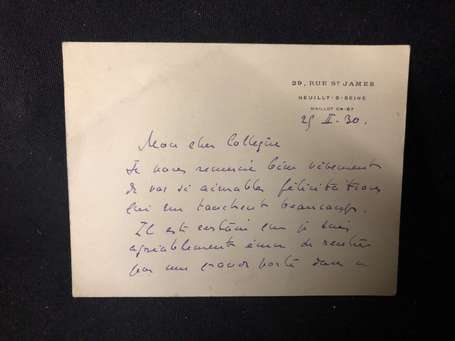 29, RUE ST JAMES
NEUILLY-S-SEINE
MAILLOT 08-67
25 II. 30.
Mon cher Collègue
Je vous remercie bien vivement
de vos si aimables félicitations
qui me touchent beaucoup.
Il est certain que je suis
agréablement ému de rentrer
par une grande porte dans